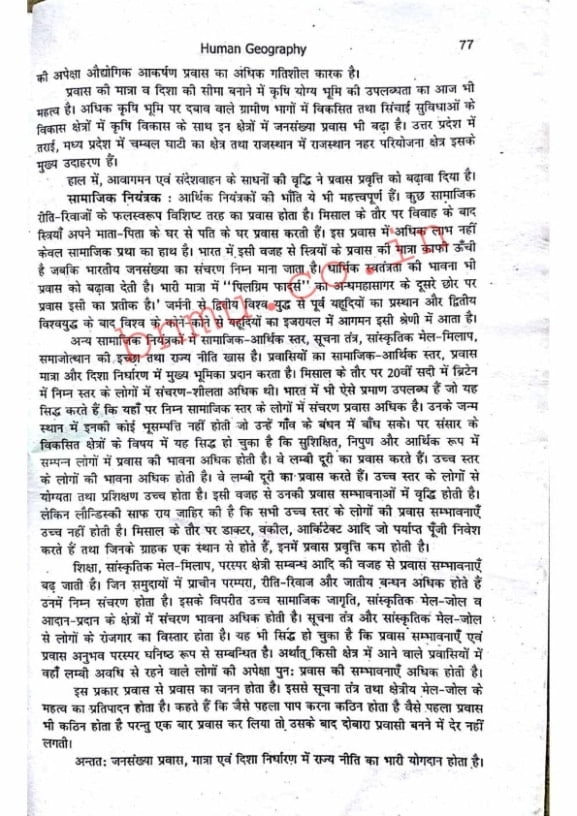 Human Geography
77
की अपेक्षा औद्योगिक आकर्षण प्रवास का अधिक गतिशील कारक है।
प्रवास की मात्रा व दिशा की सीमा बनाने में कृषि योग्य भूमि की उपलब्धता का आज भी
महत्व है। अधिक कृषि भूमि पर दबाव वाले ग्रामीण भागों में विकसित तथा सिंचाई सुविधाओं के
विकास क्षेत्रों में कृषि विकास के साथ इन क्षेत्रों में जनसंख्या प्रवास भी बढ़ा है। उत्तर प्रदेश में
तराई, मध्य प्रदेश में चम्बल घाटी का क्षेत्र तथा राजस्थान में राजस्थान नहर परियोजना क्षेत्र इसके
मुख्य उदाहरण हैं।
हाल में, आवागमन एवं संदेशवाहन के साधनों की वृद्धि ने प्रवास प्रवृत्ति को बढ़ावा दिया है।
सामाजिक नियंत्रक : आर्थिक नियंत्रकों की भाँति ये भी महत्वपूर्ण हैं। कुछ सामाजिक
रीति-रिवाजों के फलस्वरूप विशिष्ट तरह का प्रवास होता है। मिसाल के तौर पर विवाह के बाद
स्त्रियाँ अपने माता-पिता के घर से पति के घर प्रवास करती हैं। इस प्रवास में अधिक लाभ नहीं
केवल सामाजिक प्रथा का हाथ है। भारत में इसी वजह से स्त्रियों के प्रवास की मात्रा काफी ऊँची
है जबकि भारतीय जनसंख्या का संचरण निम्न माना जाता है। धार्मिक स्वतंत्रता की भावना भी
प्रवास को बढ़ावा देती है। भारी मात्रा में "पिलग्रिम फादर्स" का अन्धमहासागर के दूसरे छोर पर
प्रवास इसी का प्रतीक है।' जर्मनी से द्वितीय विश्व युद्ध से पूर्व यहूदियों का प्रस्थान और द्वितीय
विश्वयुद्ध के बाद विश्व के कोने-कोने से यहूदियों का इजरायल में आगमन इसी श्रेणी में आता है।
अन्य सामाजिक नियंत्रकों में सामाजिक-आर्थिक स्तर, सूचना तंत्र, सांस्कृतिक मेल-मिलाप,
समाजोत्थान की इच्छा तथा राज्य नीति खास है। प्रवासियों का सामाजिक-आर्थिक स्तर, प्रवास
मात्रा और दिशा निर्धारण में मुख्य भूमिका प्रदान करता है। मिसाल के तौर पर 20वीं सदी में ब्रिटेन
में निम्न स्तर के लोगों में संचरण-शीलता अधिक थी। भारत में भी ऐसे प्रमाण उपलब्ध हैं जो यह
सिद्ध करते हैं कि यहाँ पर निम्न सामाजिक स्तर के लोगों में संचरण प्रवास अधिक है। उनके जन्म
स्थान में इनकी कोई भूसम्पत्ति नहीं होती जो उन्हें गाँव के बंधन में बाँध सके। पर संसार के
विकसित क्षेत्रों के विषय में यह सिद्ध हो चुका है कि सुशिक्षित, निपुण और आर्थिक रूप में
सम्पन्न लोगों में प्रवास की भावना अधिक होती है। वे लम्बी दूरी का प्रवास करते हैं। उच्च स्तर
के लोगों की भावना अधिक होती है। वे लम्बी दूरी का प्रवास करते हैं। उच्च स्तर के लोगों से
योग्यता तथा प्रशिक्षण उच्च होता है। इसी वजह से उनकी प्रवास सम्भावनाओं में वृद्धि होती है।
लेकिन लौन्डिस्की साफ राय जाहिर की है कि सभी उच्च स्तर के लोगों की प्रवास सम्भावनाएँ
उच्च नहीं होती है। मिसाल के तौर पर डाक्टर, वकील, आर्किटेक्ट आदि जो पर्याप्त पूँजी निवेश
करते हैं तथा जिनके ग्राहक एक स्थान से होते हैं, इनमें प्रवास प्रवृत्ति कम होती है।
शिक्षा, सांस्कृतिक मेल-मिलाप, परस्पर क्षेत्री सम्बन्ध आदि की वजह से प्रवास सम्भावनाएँ
बढ़ जाती है। जिन समुदायों में प्राचीन परम्परा, रीति-रिवाज और जातीय बन्धन अधिक होते हैं
उनमें निम्न संचरण होता है। इसके विपरीत उच्च सामाजिक जागृति, सांस्कृतिक मेल-जोल व
आदान-प्रदान के क्षेत्रों में संचरण भावना अधिक होती है। सूचना तंत्र और सांस्कृतिक मेल-जोल
से लोगों के रोजगार का विस्तार होता है। यह भी सिद्ध हो चुका है कि प्रवास सम्भावनाएँ एवं
प्रवास अनुभव परस्पर घनिष्ठ रूप से सम्बन्धित है। अर्थात् किसी क्षेत्र में आने वाले प्रवासियों में
वहाँ लम्बी अवधि से रहने वाले लोगों की अपेक्षा पुनः प्रवास की सम्भावनाएँ अधिक होती है।
इस प्रकार प्रवास से प्रवास का जनन होता है। इससे सूचना तंत्र तथा क्षेत्रीय मेल-जोल के
महत्व का प्रतिपादन होता है। कहते हैं कि जैसे पहला पाप करना कठिन होता है वैसे पहला प्रवास
भी कठिन होता है परन्तु एक बार प्रवास कर लिया तो उसके बाद दोबारा प्रवासी बनने में देर नहीं
लगती।
अन्ततः जनसंख्या प्रवास, मात्रा एवं दिशा निर्धारण में राज्य नीति का भारी योगदान होता है।
bnmu.co.in